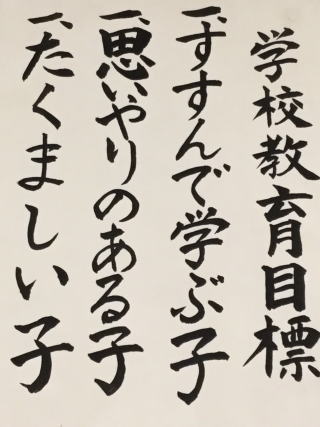 学校教育目標
一、すすんで学ぶ子
一、思いやりのある子
一、たくましい子